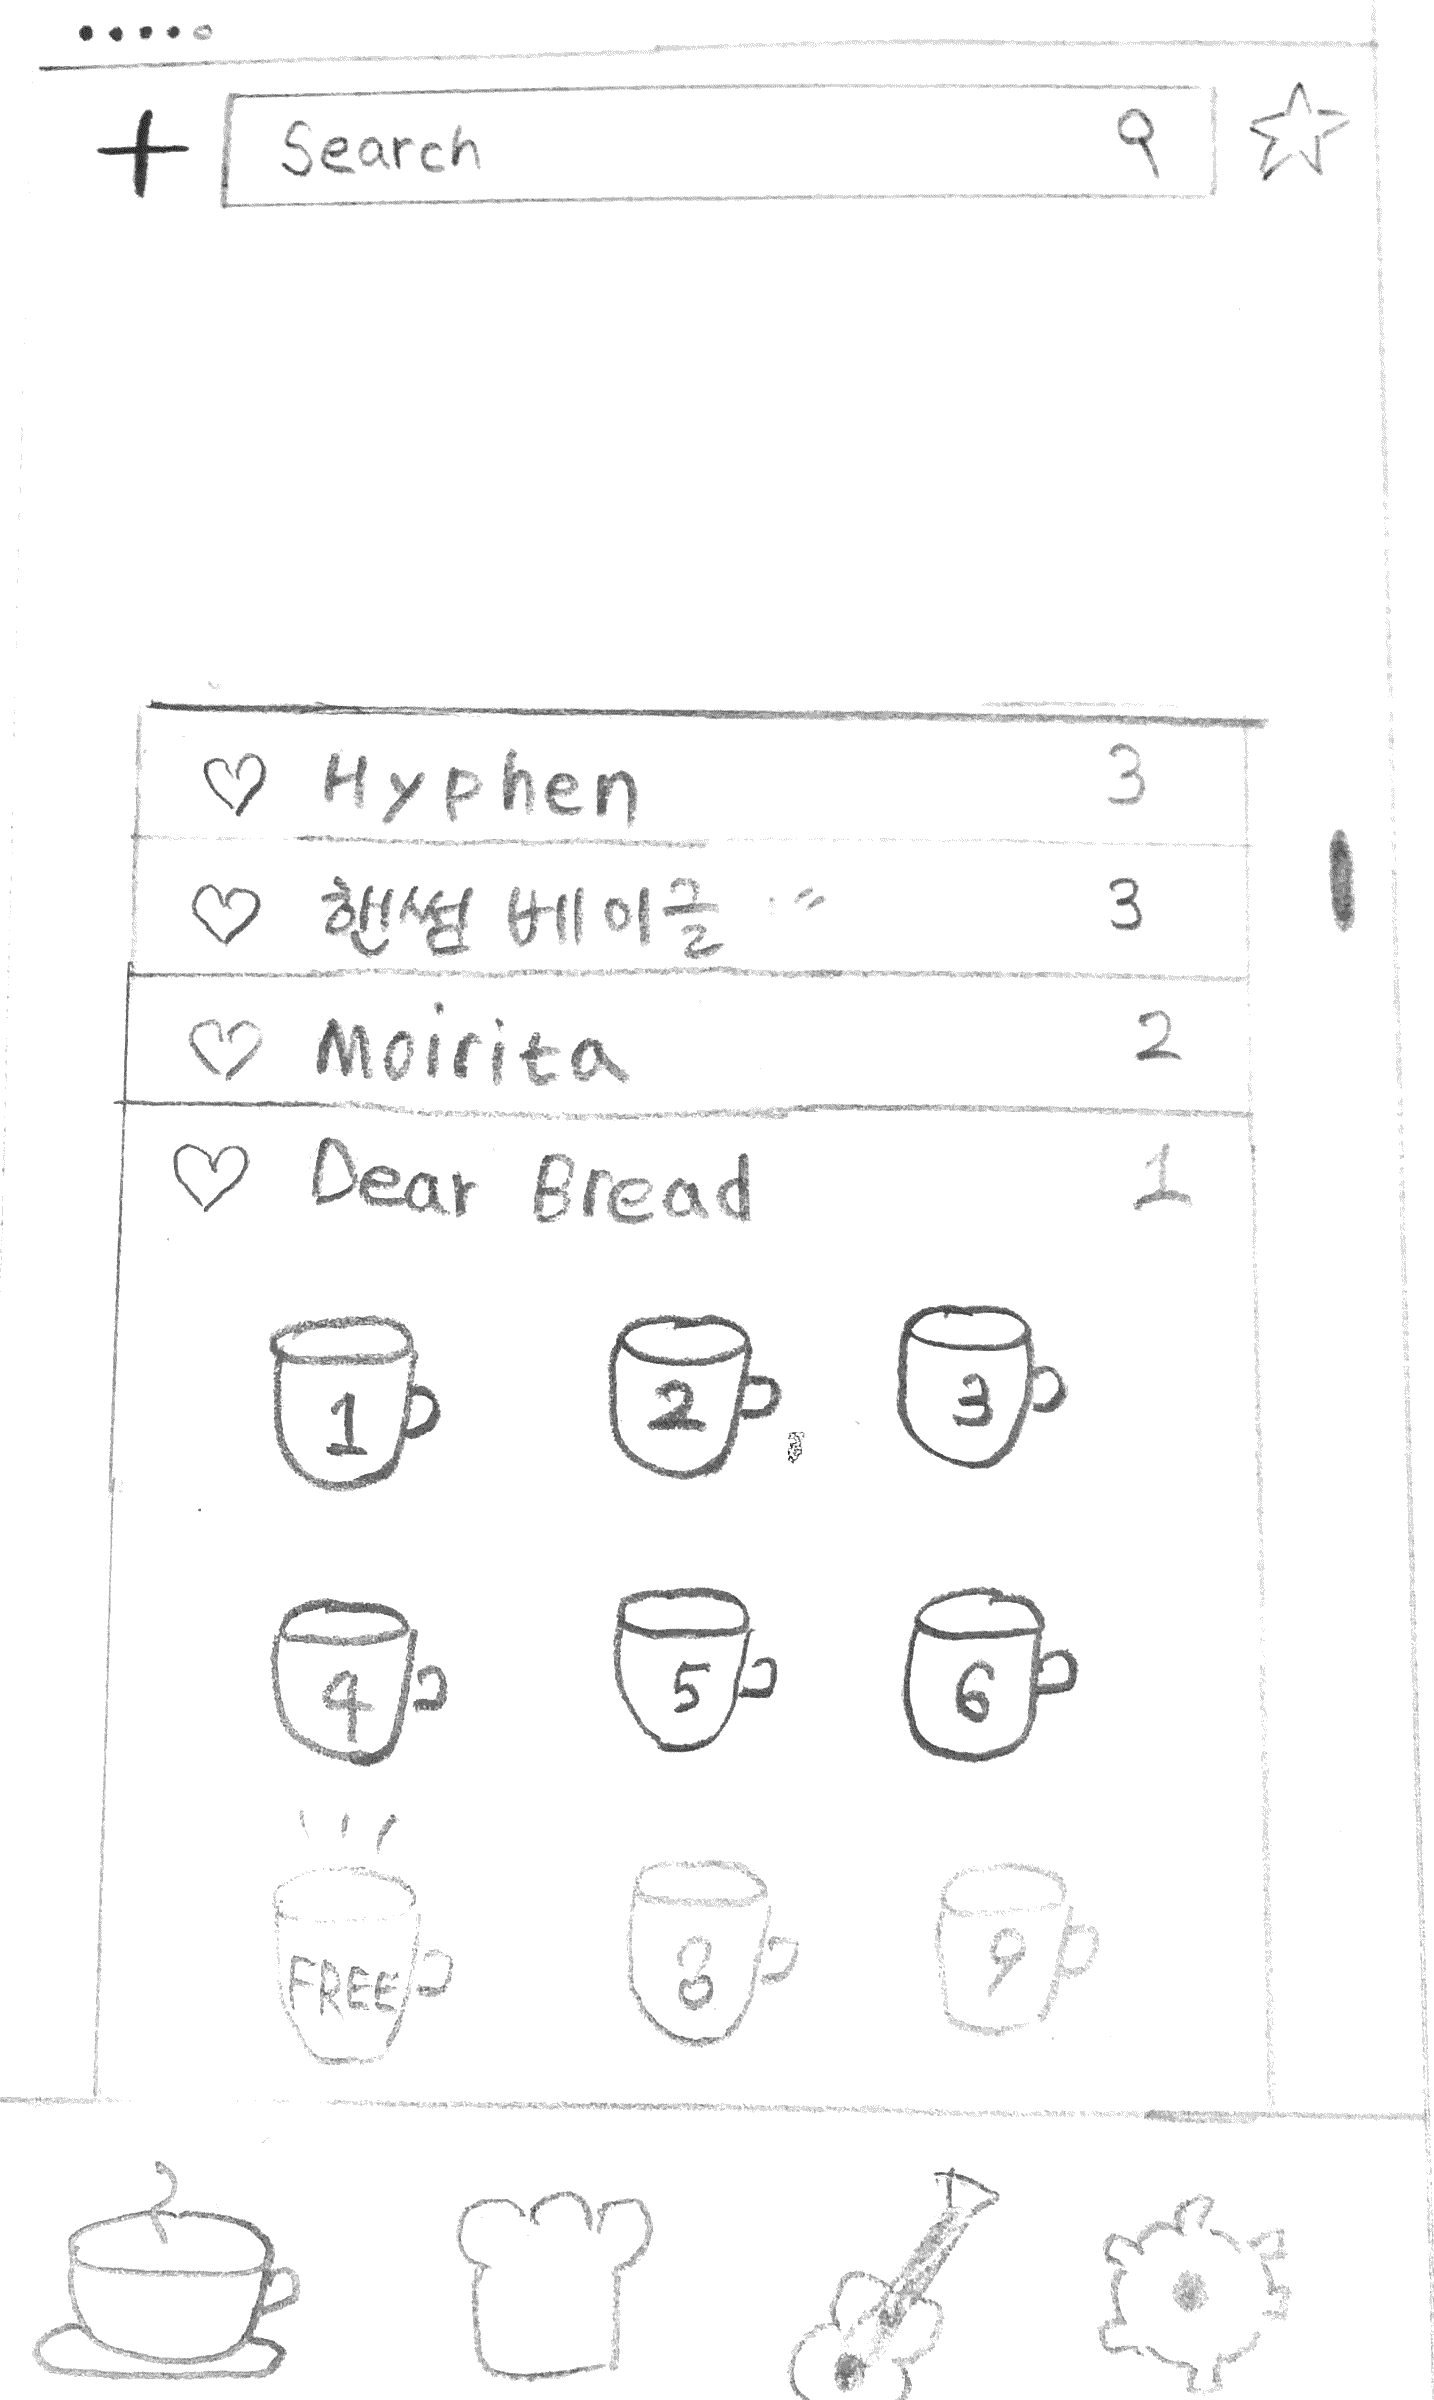 Search
Hyphen 3
핸썸 베이글 3
Moirita 2
Dear Bread 1
1 2 3
4 5 6
FREE 8 9